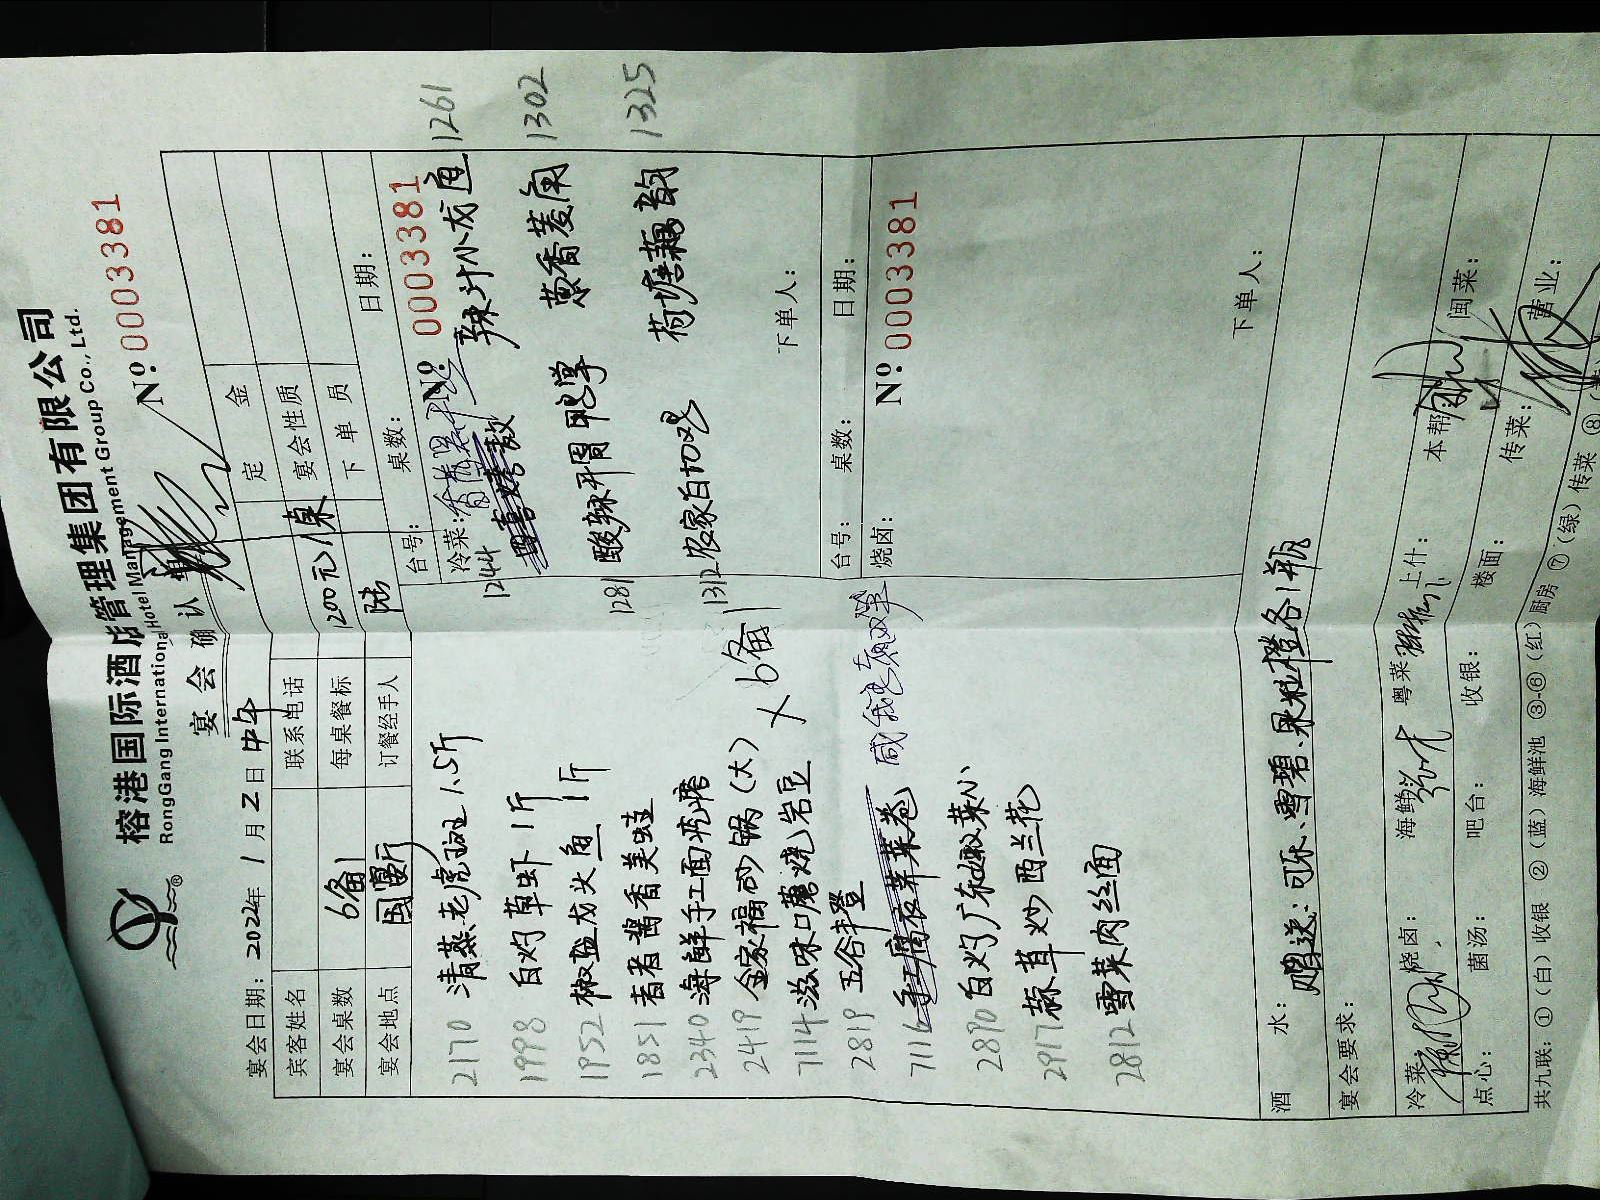 榕港国际酒店管理集团有限公司
RongGang International Hotel Management Group Co., Ltd.
宴会确认单
№ 0003381
宴会日期: 2022年 1月 2日 中午
宾客姓名 联系电话 定金
宴会桌数 6备1 每桌餐标 1200元×1桌 宴会性质
宴会地点 国宴厅 订餐经手人 陆 下单员
2170 清蒸老虎斑 1.5斤
1998 白灼草虾 1斤
1952 椒盐龙头鱼 1斤
1851 酱香美蛙
2340 海鲜手工面疙瘩
2419 金家福砂锅(大) × 6备1
7114 滋味口蘑烧芸豆
2819 五谷丰登
7116
2890 白灼广东菜心
2917 蒜茸炒西兰花
2812 雪菜肉丝面
台号: 桌数: 日期:
№ 0003381
冷菜:
1244 辣汁小龙鱼 1261
1281 酸辣开胃鸭掌 葱香菱角 1302
1312 农家白切鸡 荷塘藕韵 1325
下单人:
台号: 桌数: 日期:
烧卤: № 0003381
下单人:
酒水: 赠送:可乐、雪碧、果粒橙各1瓶
宴会要求:
冷菜 烧卤: 海鲜: 粤菜 上什: 本帮: 闽菜:
点心: 菌汤: 吧台: 收银: 楼面: 传菜: 营业:
共九联: ①(白)收银 ②(蓝)海鲜池 ③-⑥(红)厨房 ⑦(绿)传菜 ⑧